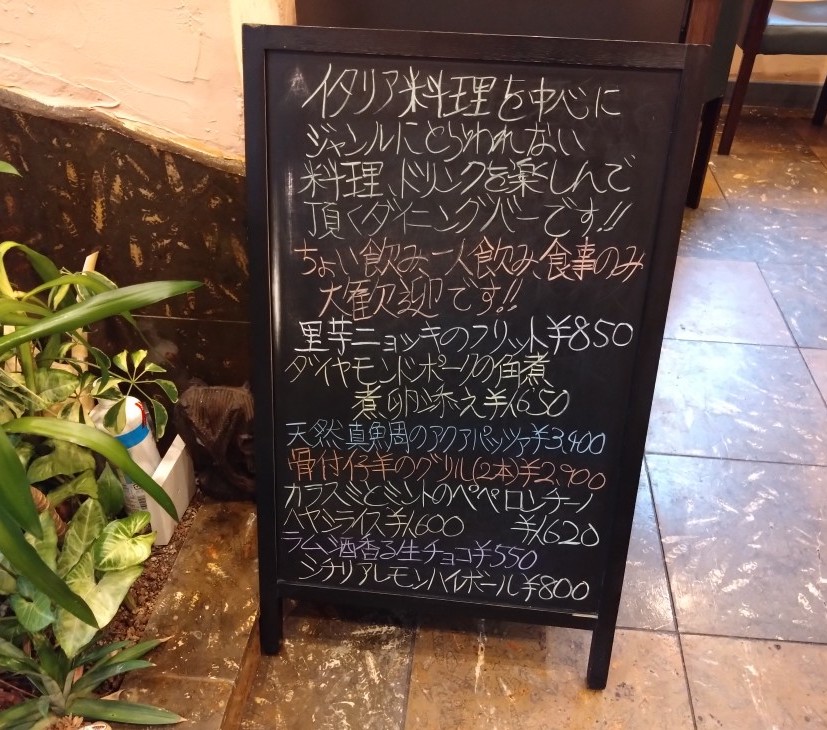 イタリア料理を中心に
ジャンルにとらわれない
料理、ドリンクを楽しんで
頂くダイニングバーです!!
ちょい飲み、一人飲み、食事のみ
大歓迎です!!
里芋ニョッキのフリット¥850
ダイヤモンドポークの角煮
煮卵添え¥1,650
天然真魚周のアクアパッツァ¥3,400
骨付仔羊のグリル(2本)¥2,900
カラスミとミントのペペロンチーノ
ハヤシライス¥1,600 ¥1,620
ラム酒香る生チョコ¥550
シチリアレモンハイボール¥800